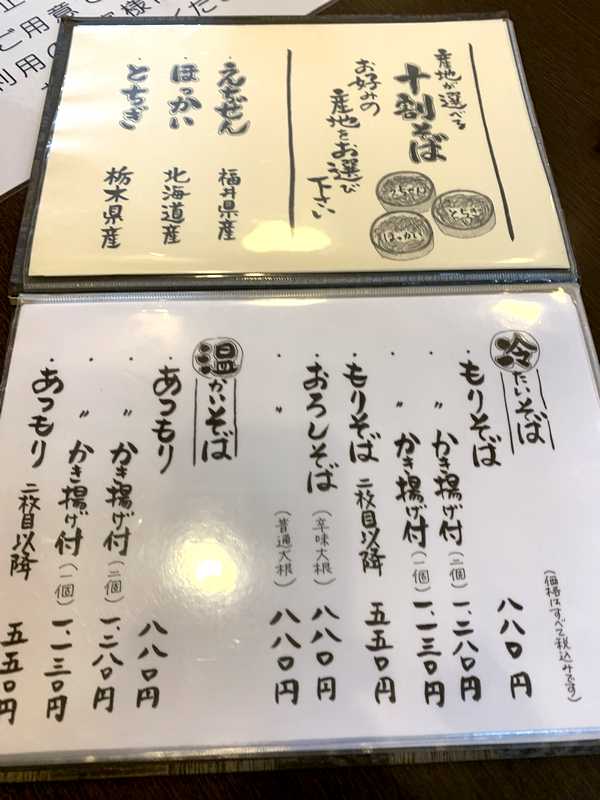 産地が選べる
十割そば
お好みの
産地をお選び
下さい
えちぜん
とちぎ
ほっかい
・えちぜん 福井県産
・ほっかい 北海道産
・とちぎ 栃木県産
冷たいそば
(価格はすべて税込みです)
・もりそば 八八〇円
・〃 かき揚げ付(二個) 一、二八〇円
・〃 かき揚げ付(一個) 一、一三〇円
・もりそば 二枚目以降 五五〇円
・おろしそば(辛味大根) 八八〇円
・〃(普通大根) 八八〇円
温かいそば
・あつもり 八八〇円
・〃 かき揚げ付(二個) 一、二八〇円
・〃 かき揚げ付(一個) 一、一三〇円
・あつもり 二枚目以降 五五〇円
ご用意
利用